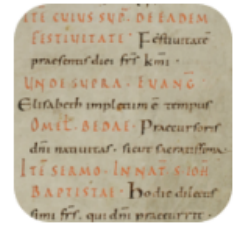 ITĒ CUIUS SUP̄. DE EADEM
FESTIUITATE · Festiuitatē
praesentis diei fr̄s k̄mi ·
UNDE SUPRA · EUANḠ
Elisabeth impletum ē tempus
OMEL̄. BEDAE · Praecursoris
dn̄i natiuitas · sicut sacratissima
ITĒ SERMO · IN NAT̄ S̄ IOH̄
BAPTISTAE · Hodie dilectis
simi fr̄s, qui dn̄i praecurrit ·